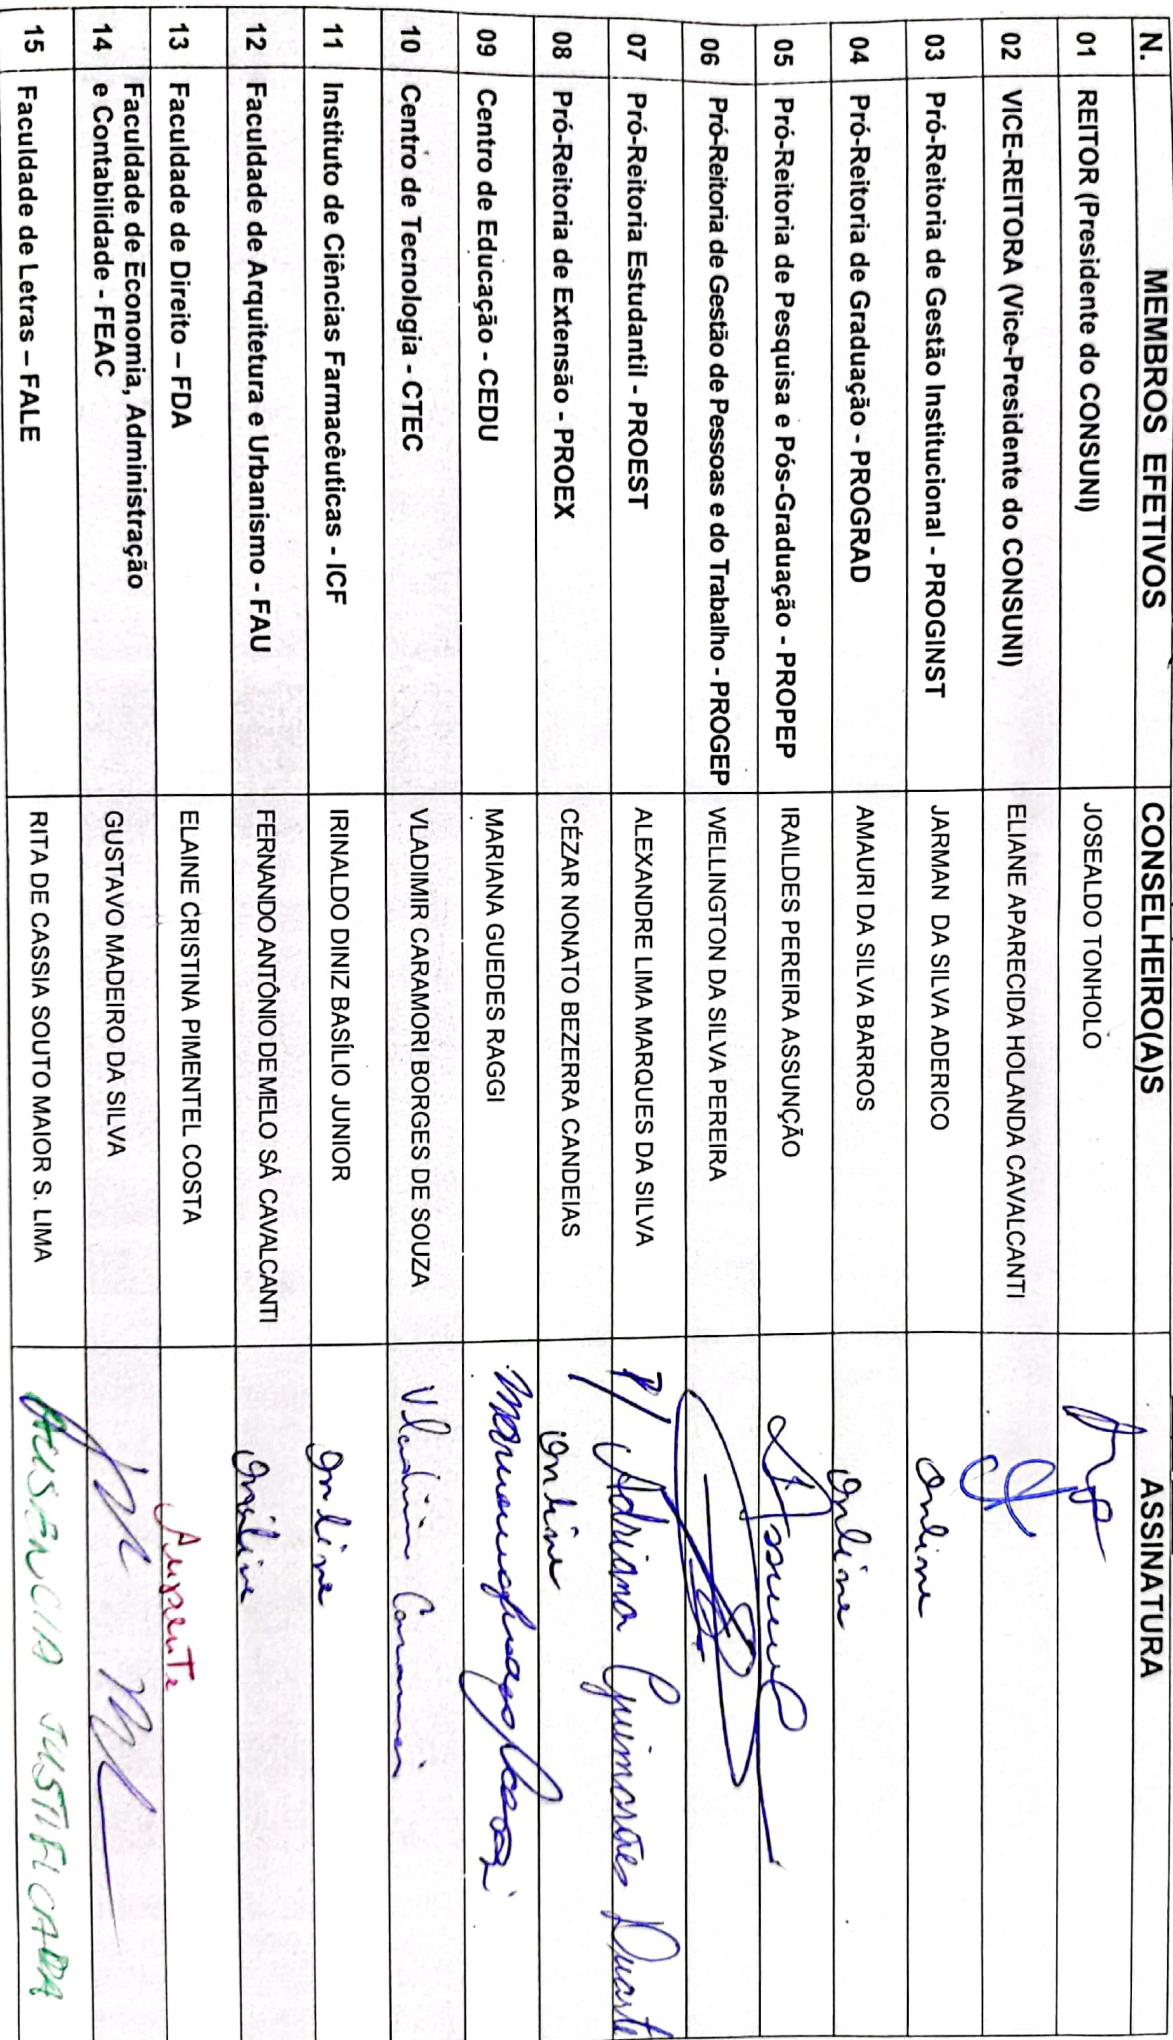 N. MEMBROS EFETIVOS CONSELHEIRO(A)S ASSINATURA
01 REITOR (Presidente do CONSUNI) JOSEALDO TONHOLO
02 VICE-REITORA (Vice-Presidente do CONSUNI) ELIANE APARECIDA HOLANDA CAVALCANTI
03 Pró-Reitoria de Gestão Institucional - PROGINST JARMAN DA SILVA ADERICO online
04 Pró-Reitoria de Graduação - PROGRAD AMAURI DA SILVA BARROS online
05 Pró-Reitoria de Pesquisa e Pós-Graduação - PROPEP IRAILDES PEREIRA ASSUNÇÃO
06 Pró-Reitoria de Gestão de Pessoas e do Trabalho - PROGEP WELLINGTON DA SILVA PEREIRA
07 Pró-Reitoria Estudantil - PROEST ALEXANDRE LIMA MARQUES DA SILVA P/ Adriana Guimarães Duarte
08 Pró-Reitoria de Extensão - PROEX CÉZAR NONATO BEZERRA CANDEIAS online
09 Centro de Educação - CEDU MARIANA GUEDES RAGGI
10 Centro de Tecnologia - CTEC VLADIMIR CARAMORI BORGES DE SOUZA Vladimir Caramori
11 Instituto de Ciências Farmacêuticas - ICF IRINALDO DINIZ BASÍLIO JUNIOR online
12 Faculdade de Arquitetura e Urbanismo - FAU FERNANDO ANTÔNIO DE MELO SÁ CAVALCANTI online
13 Faculdade de Direito – FDA ELAINE CRISTINA PIMENTEL COSTA Ausente
14 Faculdade de Economia, Administração
e Contabilidade - FEAC GUSTAVO MADEIRO DA SILVA
15 Faculdade de Letras – FALE RITA DE CASSIA SOUTO MAIOR S. LIMA AUSENCIA JUSTIFICADA